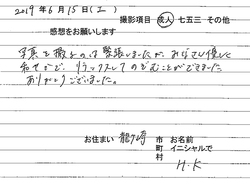 2019年6月15日(土)
撮影項目 成人 七五三 その他
感想をお願いします
写真を撮るのは緊張しましたが、みなさん優しく
和やかで、リラックスしてのぞむことができました。
ありがとうございました。
お住まい 龍ケ崎 市 町 村 お名前 イニシャルで
H.K